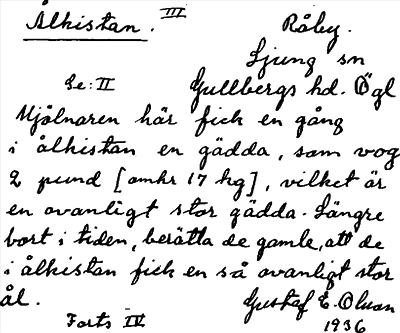 Ålkistan. III Råby.
Ljung sn
Se: II Gullbergs hd. Ögl
Mjölnaren här fick en gång
i ålkistan en gädda, som vog
2 pund [omkr 17 kg], vilket är
en ovanligt stor gädda. Längre
bort i tiden, berätta de gamle, att de
i ålkistan fick en så ovanligt stor
ål. Gustaf E. Olson
Forts IV 1936